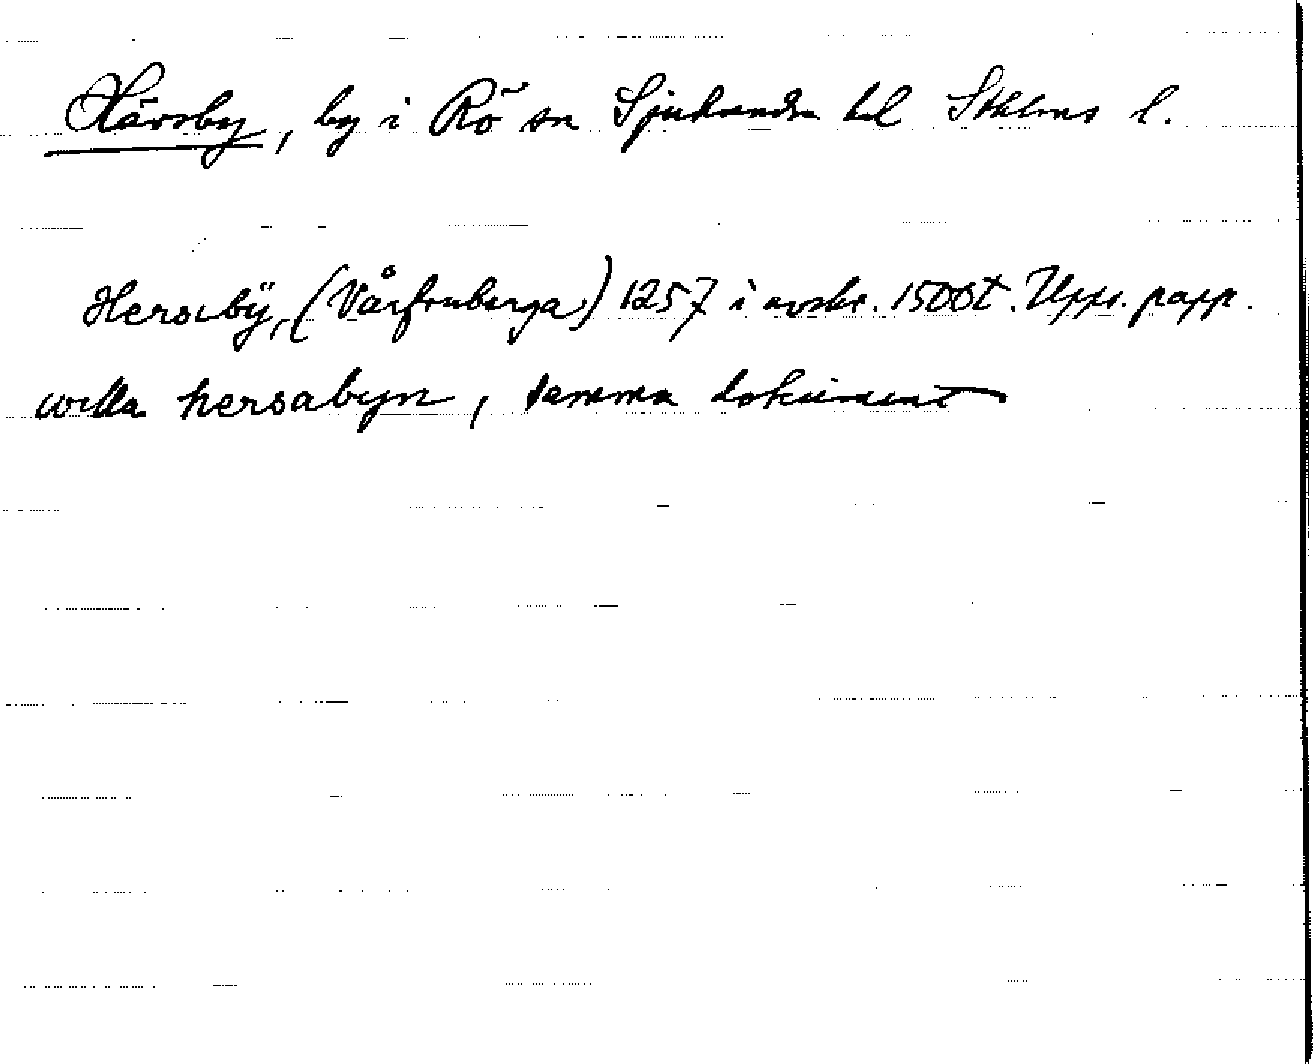 Härsby, by i Rö sn Sjuhundra hd Sthlms l.
Hersby, (Vårfruberga) 1257 i avskr. 1500t. Upps. papp.
willa hersabyn, samma dokument